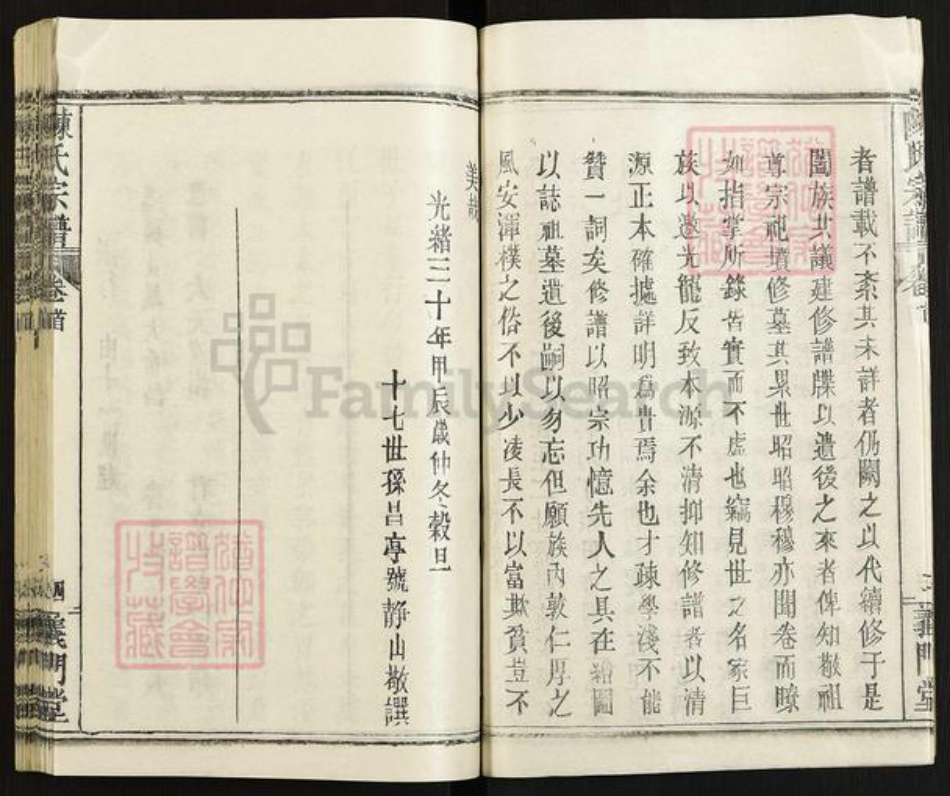 者譜載不紊其未詳者仍闕之以代續修于是
闔族共議建修譜牒以遺後之來者俾知敬祖
尊宗祀墳修墓其累世昭昭穆穆亦開卷而瞭
如指掌所錄皆實而不虛也竊見世之名家巨
族以邀光寵反致本源不清抑知修譜者以清
源正本確據詳明為貴焉余也才疎學淺不能
贊一詞矣修譜以昭宗功憶先人之具在繪圖
以誌祖墓遺後嗣以勿忘但願族內敦仁厚之
風安渾樸之俗不以少凌長不以富欺貧豈不
美哉
光緒三十年甲辰歲仲冬穀旦
十七世孫昌亭號靜山敬譔
陳氏宗譜 卷首 四 義門堂
FamilySearch